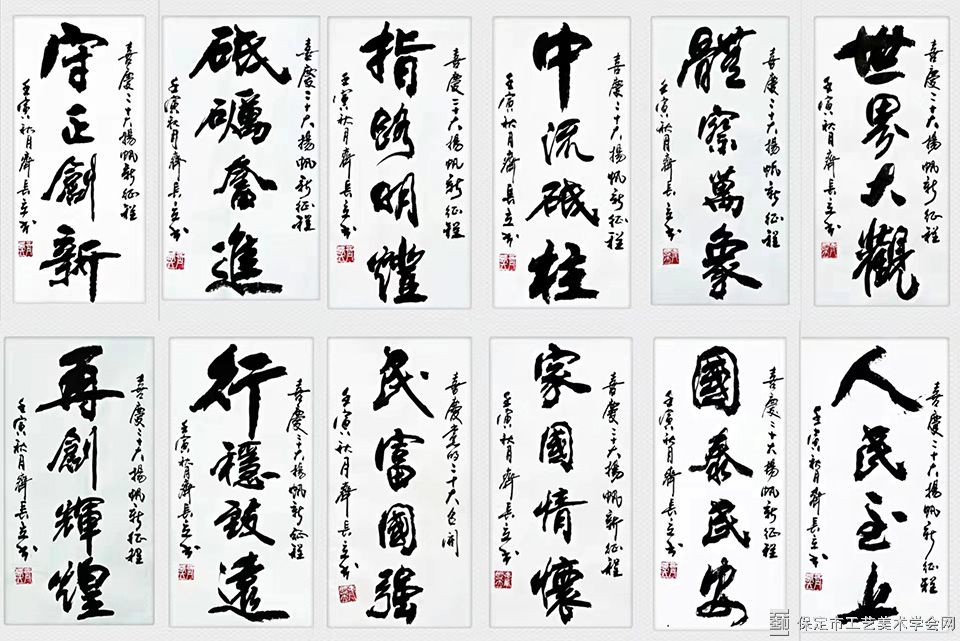 喜慶二十大揚帆新征程
世界大觀
壬寅秋月齊長立书
喜慶二十大揚帆新征程
體察萬象
壬寅秋月齊長立书
喜慶二十大揚帆新征程
中流砥柱
壬寅秋月齊長立书
喜慶二十大揚帆新征程
指路明燈
壬寅秋月齊長立书
喜慶二十大揚帆新征程
砥礪奮進
壬寅秋月齊長立书
喜慶二十大揚帆新征程
守正創新
壬寅秋月齊長立书
喜慶二十大揚帆新征程
人民至上
壬寅秋月齊長立书
喜慶二十大揚帆新征程
國泰民安
壬寅秋月齊長立书
喜慶二十大揚帆新征程
家國情懷
壬寅秋月齊長立书
喜慶黨的二十大召開
民富國强
壬寅秋月齊長立书
喜慶二十大揚帆新征程
行穩致遠
壬寅秋月齊長立书
喜慶二十大揚帆新征程
再創輝煌
壬寅秋月齊長立书
保定市工艺美术学会网